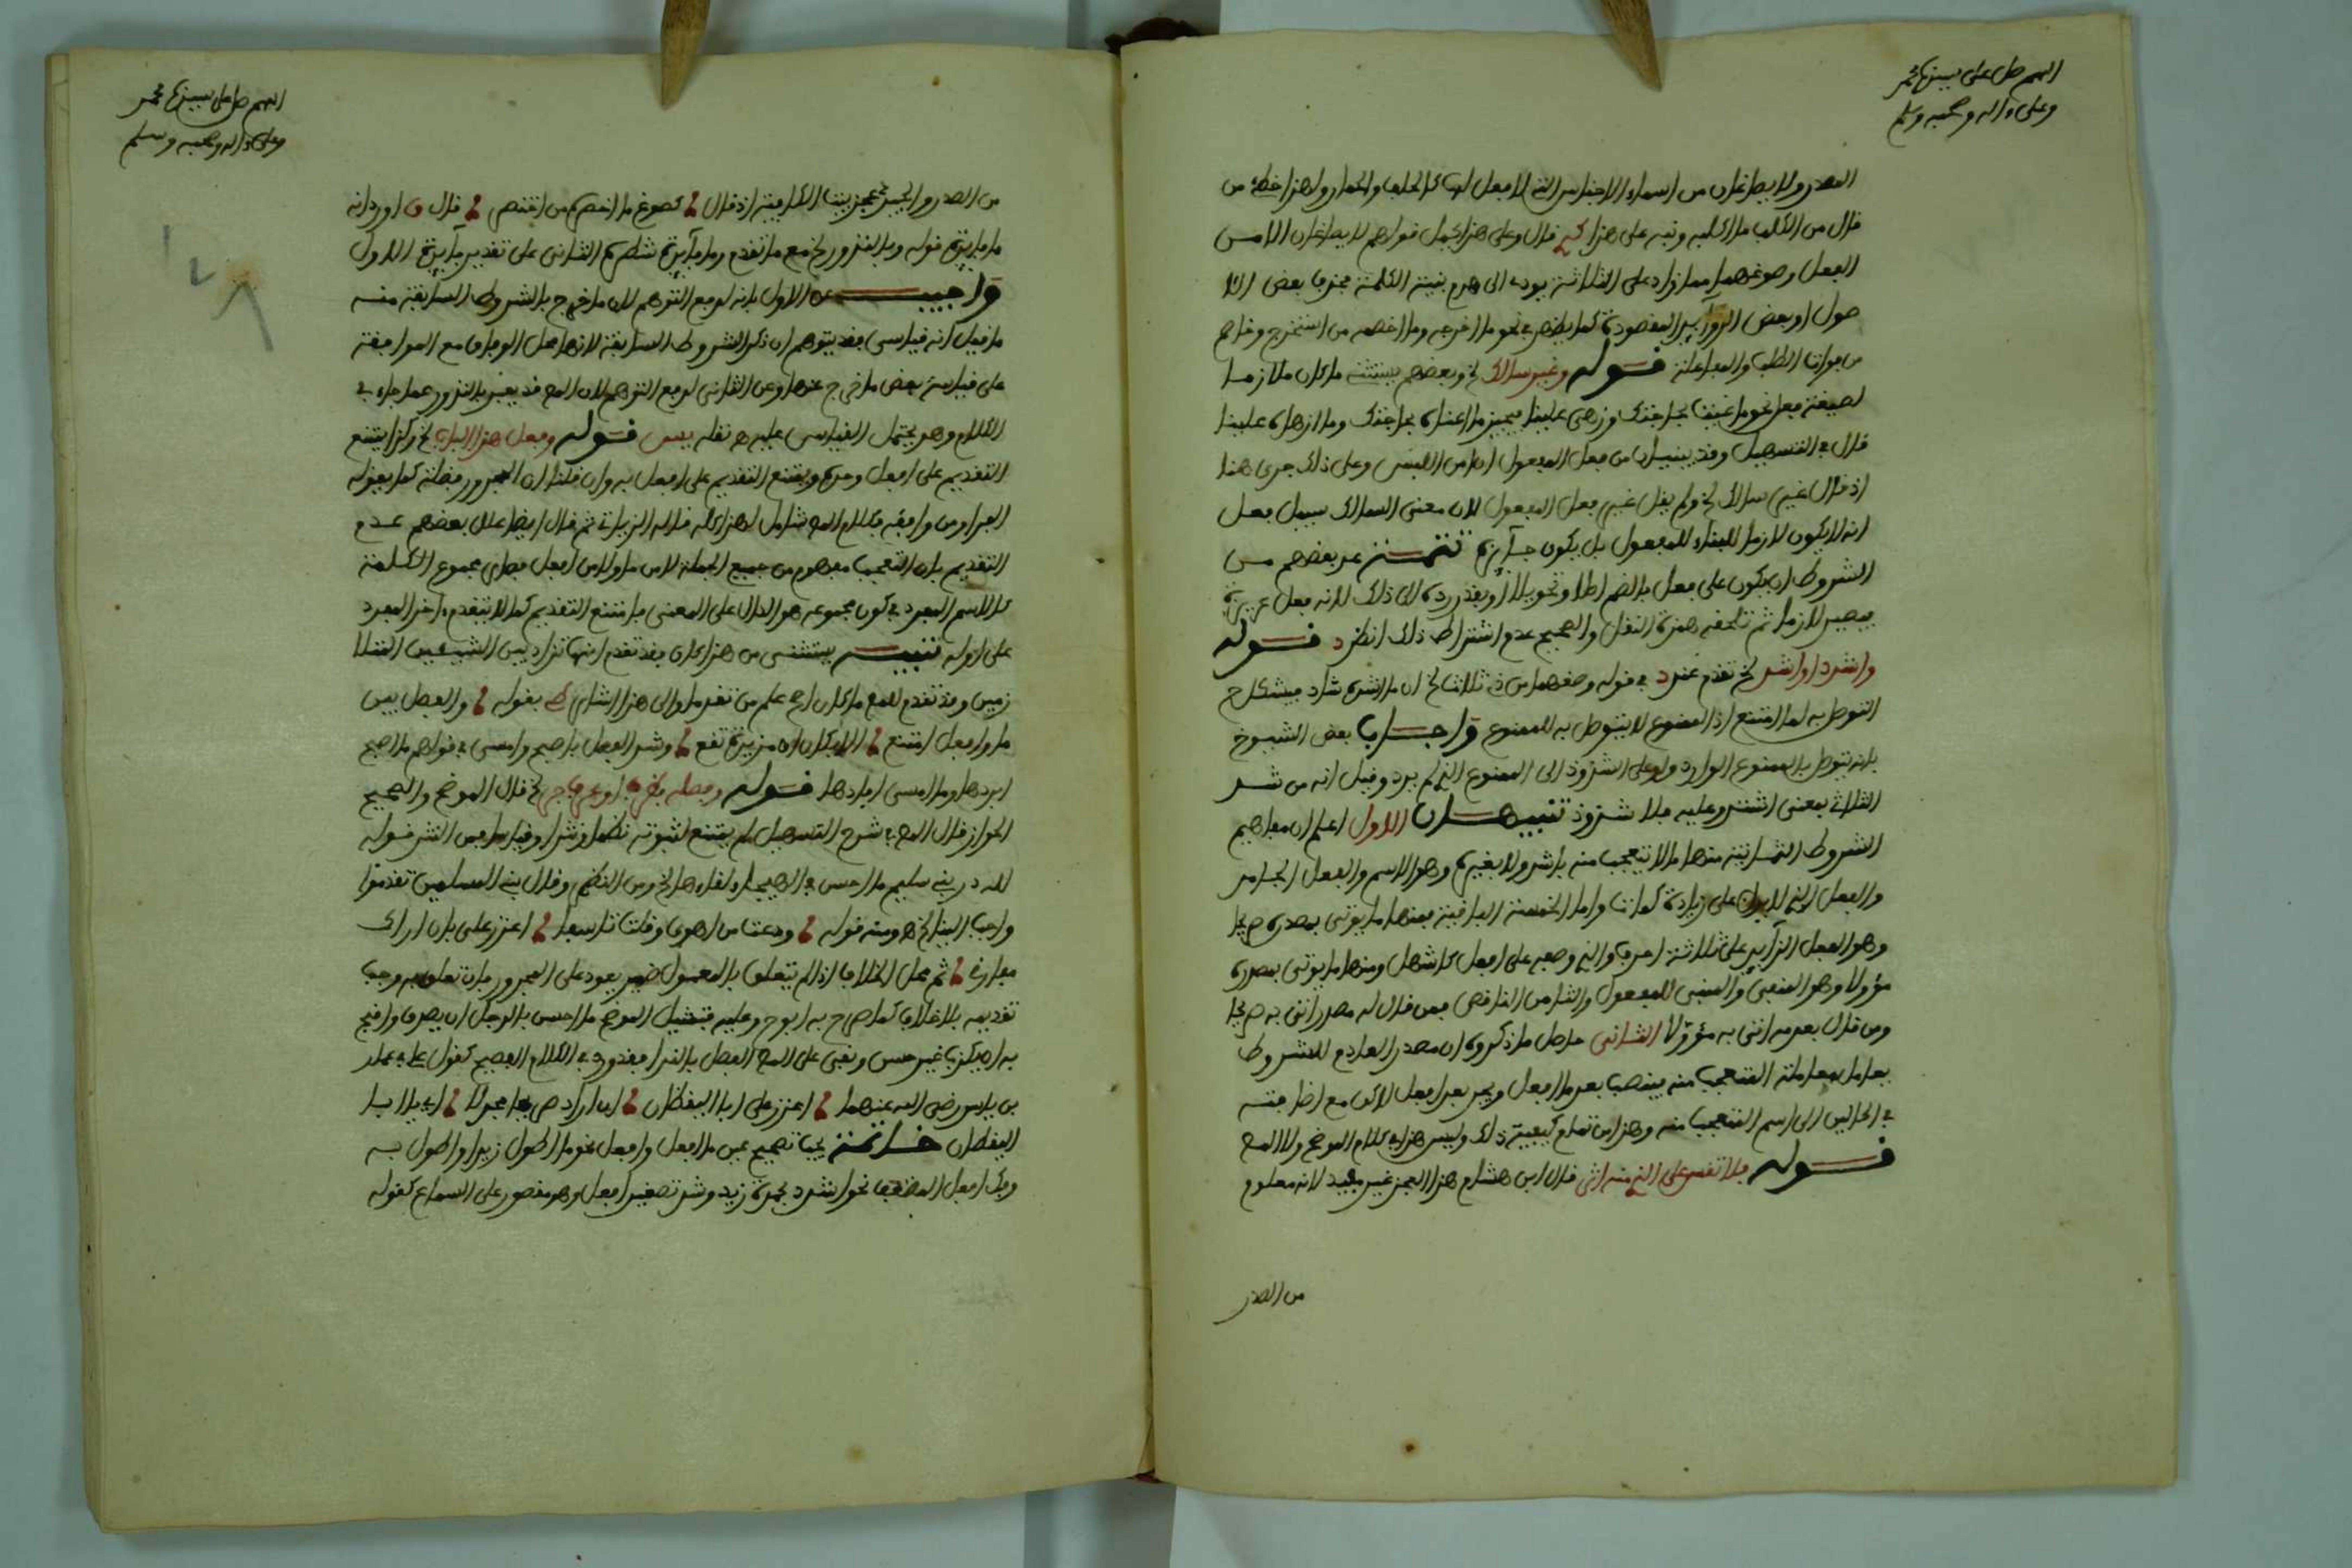 اللهم صل على سيدنا محمد
وعلى ءاله وصحبه وسلم
المصدر ولا يصاغان من اسماء الاجناس التي لا فعل لها كالجلف والحمار ولهذا خطئ من
قال من الكلب ما اكلبه ونبه على هذا قال وعلى هذا يحمل قولهم لا يصاغان الا من
الفعل وصوغهما مما زاد على الثلاثة يودى الى هدم بنية الكلمة بحذف بعض الا
صول او بعض الزوايد المقصودة كما يظهر في نحو ما اخرجه وما اخصمه من استخرج وخاصم
من فوات الطلب والمفاعلة قوله وغير سالك لخ وبعضهم يستثنى ما كان ملازما
لصيغة فعل نحو عنيت بحاجتك وزهى علينا فيجيز ما اعناه بحاجتك وما ازهاه علينا
قال في التسهيل وقد يبنيان من فعل المفعول ان امن اللبس وعلى ذلك جرى هنا
اذ قال غير سالك لخ ولم يقل غير فعل المفعول لان معنى السالك سبيل فعل
انه لا يكون لازما للبناء للمفعول بل يكون جايزه تتمة عد بعضهم من
الشروط ان يكون على فعل بالضم اصلا وتحويلا او يقدر رده الى ذلك لانه فعل غريزة
فيصير لازما ثم تلحقه همزة النقل والصحيح عدم اشتراط ذلك انظر د قوله
واشدد او اشد لخ تقدم عند د في قوله وصغهما من ذي ثلاث لخ ان ما اشده شاذ فيشكل ح
التوصل به لما امتنع اذ الممنوع لا يتوصل به للممنوع واجاب بعض الشيوخ
بانه يتوصل بالممنوع الوارد ولو على الشذوذ الى الممنوع الذي لم يرد وقيل انه من شد
الثلاثي بمعنى اشتد وعليه فلا شذوذ تنبيهان الاول اعلم ان مفاهيم
الشروط الثمانية منها ما لا يتعجب منه باشد ولا بغيره وهو الاسم والفعل الجامد
والفعل الذي لا يدل على زيادة كمات واما الخمسة الباقية فمنها ما يوتى بمصدره صريحا
وهو الفعل الزايد على ثلاثة احرف والذي وصفه على افعل كاشهل ومنها ما يوتى بمصدره
مؤولا وهو المنفي والمبني للمفعول والثامن الناقص فمن قال له مصدر اتى به صريحا
ومن قال بعدمه اتى به مؤولا الثاني حاصل ما ذكروه ان مصدر العادم للشروط
يعامل معاملة المتعجب منه فينصب بعد ما افعل ويجر بعد افعل لاكن مع اضافته
في الحالين الى اسم المتعجب منه وهذا من تمام كيفية ذلك وليس هذا في كلام الموضح ولا المص
قوله فلا تقس على الذي منه اثر قال ابن هشام هذا العجز غير مفيد لانه معلوم
من الصدر
اللهم صل على سيدنا محمد
وعلى ءاله وصحبه وسلم
من الصدر والجيد عجز بيت الكافية اذ قال كصوغ ما اخصره من اختصر قال و اورد انه
ما فايدة قوله وبالندور لخ مع ما تقدم وما فايدة شطره الثاني على تقدير فايدة الاول
واجيب عن الاول بانه لرفع التوهم لان ما خرج بالشروط السابقة منه
ما قيل انه قياسى فقد يتوهم ان ذكر الشروط السابقة لانها محل الوفاق مع الموافقة
على قياسية بعض ما خرج عنها وعن الثاني لرفع التوهم لان المص قد يعبر بالندور عما جاء في
الكلام وهو يحتمل القياس عليه ه نقله يس قوله وفعل هذا الباب لخ وكذا يمتنع
التقديم على افعل وحده ويمتنع التقديم على افعل به وان قلنا ان المجرور فضلة كما يقوله
الفراء ومن وافقه فكلام المص شامل لهذا كله قاله الزياتى ثم قال ايضا علل بعضهم عدم
التقديم بان التعجب مفهوم من جميع الجملة لا من ما ولا من افعل فصار مجموع الكلمة
كالاسم المفرد في كون مجموعه هو الدال على المعنى فامتنع التقديم كما لا يتقدم ءاخر المفرد
على اوله تنبيه يستثنى من هذا كان فقد تقدم انها تزاد بين الشيئين المتلا
زمين وقد تقدم للمص ما كان اصح علم من تقدما والى هذا اشار بقوله والفصل بين
ما وافعل امتنع الا بكان ان مزيدة تقع وشذ الفصل باصبح وامسى في قولهم ما اصبح
ابردها وما امسى ادفاها قوله وفصله بظرف او بحرف جر لخ قال الموضح والصحيح
الجواز قال المص في شرح التسهيل لم يمتنع لثبوته نظما ونثرا وقياسا فمن النثر قوله
لله در بني سليم ما احسن في الهيجاء لقاءها لخ ومن النظم وقال نبي المسلمين تقدموا
واحبب الينا لخ ه ومنه قوله ودعت من اهوى وقلت تاسفا اعزز علي بان اراك
مفارقي ثم محل الخلاف اذا لم يتعلق بالمعمول ضمير يعود على المجرور فان تعلق به وجب
تقديمه بلا خلاف كما صرح به ابو ح وعليه فتمثيل الموضح ما احسن بالرجل ان يصدق واقبح
به ان يكذب غير حسن وبقى على المص الفصل بالندا فقد ورد في الكلام الفصيح كقول علي في عمار
بن ياسر رضى الله عنهما اعزز علي ابا اليقظان ان اراك صريعا مجدلا اي يا ابا
اليقظان خاتمة يجب تصحيح عين ما افعل وافعل نحو ما اطول زيدا واطول به
وفك افعل المضعف نحو اشدد بحمرة زيد وشذ تصغير افعل وهو مقصور على السماع كقوله